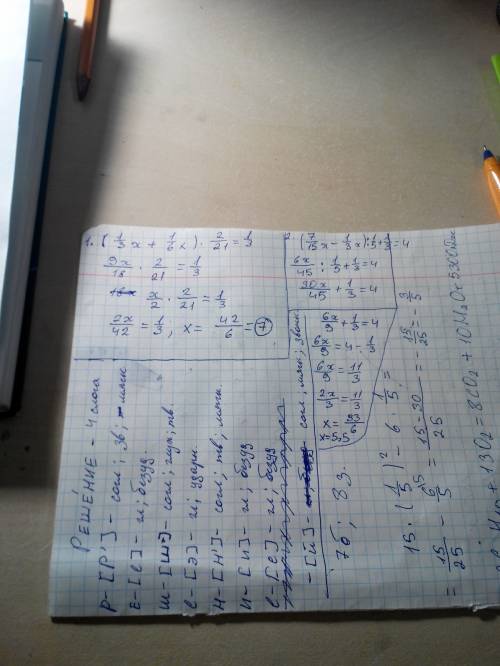 1. (1/3 x + 1/6 x) · 2/21 = 1/3
9x/18 · 2/21 = 1/3
x/2 · 2/21 = 1/3
2x/42 = 1/3, x = 42/6 = 7
2. (7/15 x - 1/3 x) : 1/5 + 1/3 = 4
6x/45 : 1/5 + 1/3 = 4
30x/45 + 1/3 = 4
6x/9 + 1/3 = 4
6x/9 = 4 - 1/3
6x/9 = 11/3
2x/3 = 11/3
x = 33/6
x = 5,5
РЕШЕНИЕ - 4 слога
Р - [Р'] - согл; зв; мягк
Е - [Е] - гл; безуд
Ш - [Ш] - согл; глух; тв.
Е - [Э] - гл; ударн.
Н - [Н'] - согл; мягк.
И - [И] - гл; безуд
Е - [Е] - гл; безуд
- [Й] - согл; мягк; звонк
7б; 8з.
15 · (1/5)² - 6 · 1/5 =
= 15/25 - 6/5 = 15-30/25 = -15/25 = -3/5
+ 13O₂ = 8CO₂ + 10H₂O +